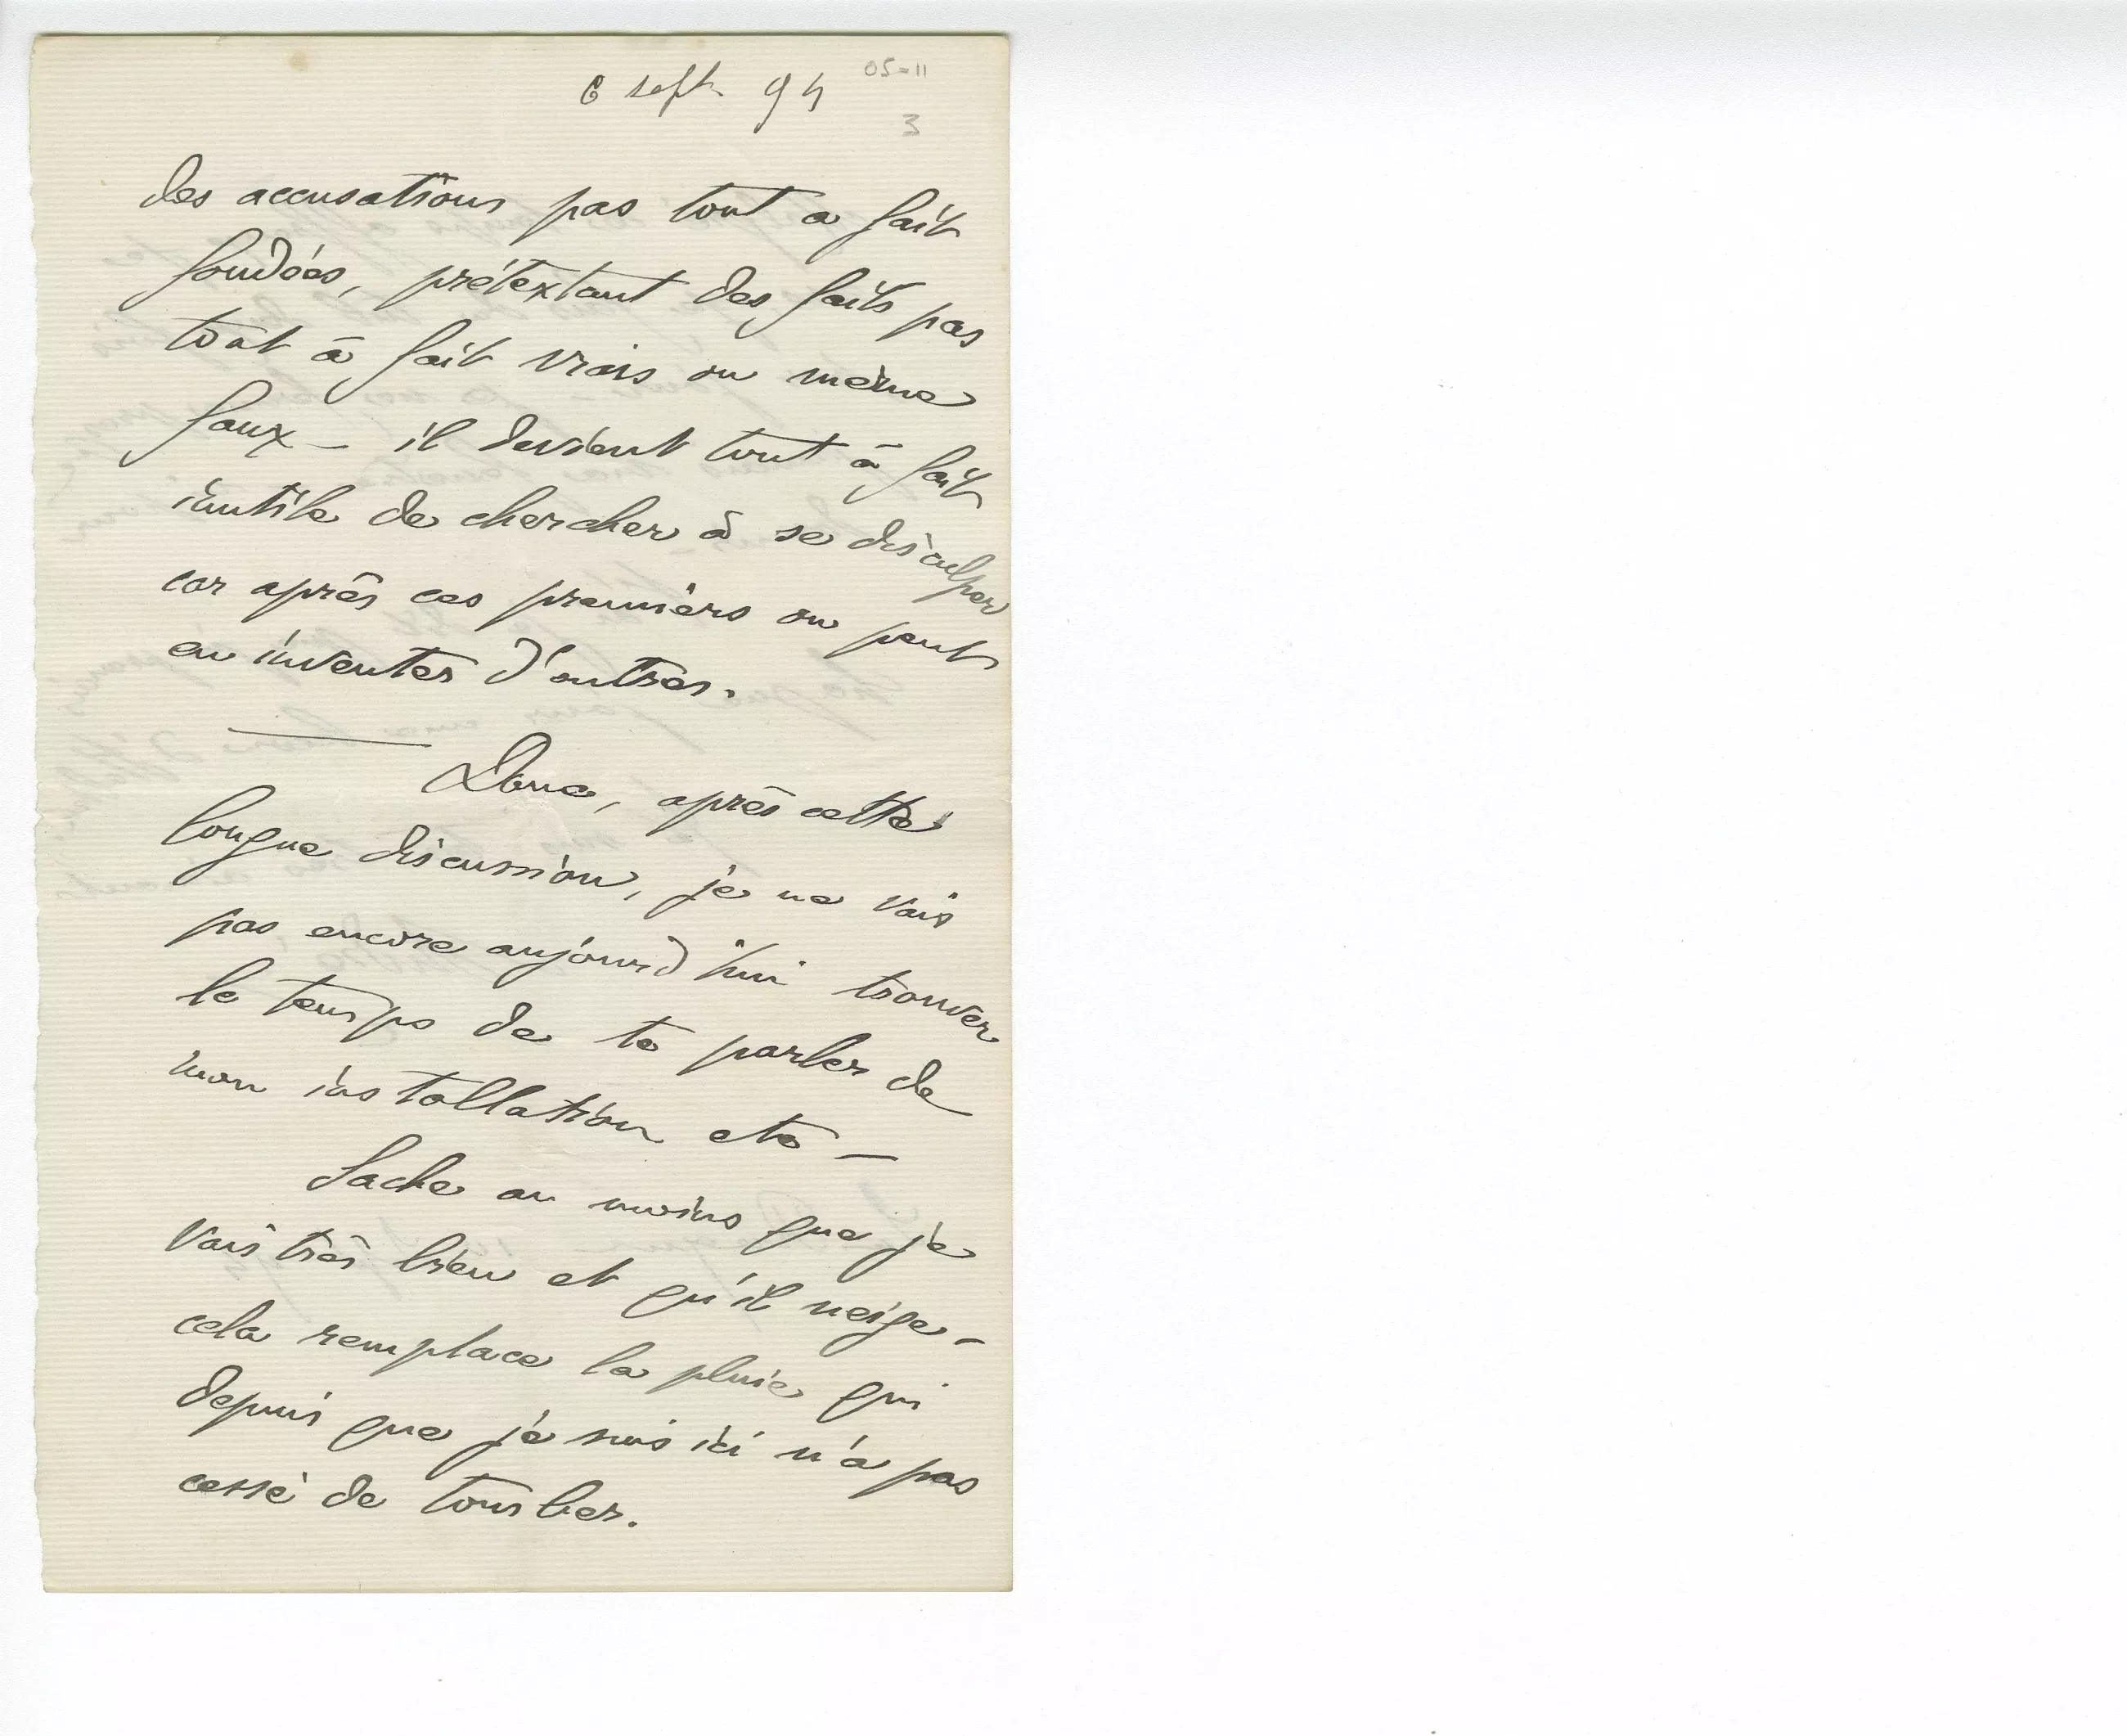 6 sept. 94
05-11
3
des accusations pas tout a fait
fondées, prétextant des faits pas
tout à fait vrais ou même
faux – il devient tout à fait
inutile de chercher à se disculper
car après ces premiers on peut
en inventer d'autres.
Donc, après cette
longue discussion, je ne vais
pas encore aujourd'hui trouver
le temps de te parler de
mon installation etc –
Sache au moins que je
vais très bien et qu'il neige –
cela remplace la pluie qui
depuis que je suis ici n'a pas
cessé de tomber.